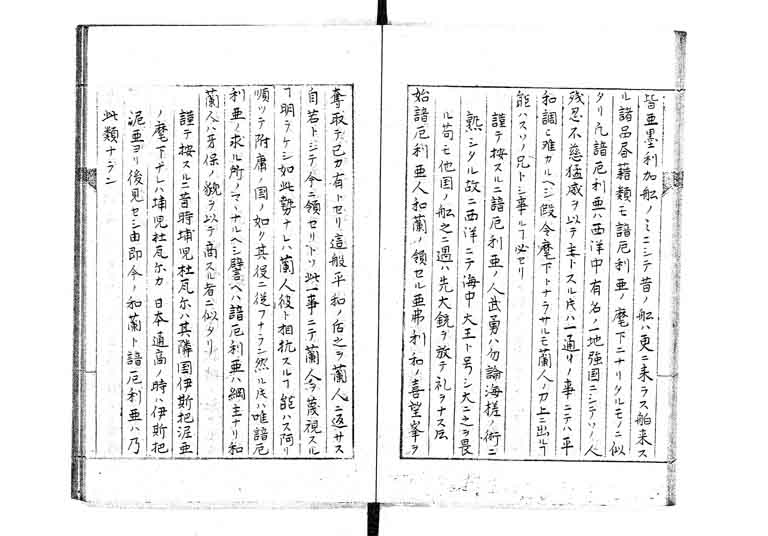 皆亜墨利加船ノミニシテ昔ノ船ハ更ニ来ラス舶来ス
ル諸品曆籍類モ諳厄利亜ノ麾下ニナリタルモノニ似
タリ凡諳厄利亜ハ西洋中有名ノ地強国ニシテソノ人
残忍不慈猛威ヲ以テ主トスル𪜈ハ一通リノ事ニテハ平
和調ヒ難カルヘシ假令麾下トナラサルモ蘭人ノ力上ニ出ルヿ
能ハスソノ兄トシ事ルヿ必セリ
謹テ按スルニ諳厄利亜ノ人武勇ハ勿論海槎ノ術ニ
熟シタル故ニ西洋ニテ海中大王ト号シ大ニ之ヲ畏
ル苟モ他国ノ船之ニ遇ハ先大銃ヲ放テ礼ヲナス
始諳厄利亜人和蘭ノ領セル亜弗利和ノ喜望峯ヲ
奪取テ己カ有トセリ這般平和ノ後之ヲ蘭人ニ返サス
自若トシテ今ニ領セリトソ此一事ニテ蘭人今蔑視スル
ヿ明ラケシ如此勢ナレハ蘭人彼ト相抗スルヿ能ハス阿リ
順ツテ附庸ノ国ノ如ク其役ニ従フナラン然ル𪜈ハ唯諳厄
利亜ノ求ル所ノママナルヘシ譬ヘハ諳厄利亜ハ綱主ナリ和
蘭人ハ牙保ノ貌ヲ以テ商スル者ニ似タリ
謹テ按スルニ昔時埔児杜瓦尔ハ其隣国伊斯把泥亜
ノ麾下ナレハ埔児杜瓦尔カ日本通商ノ時ハ伊斯把
泥亜ヨリ後見セシ由即今ノ和蘭ト諳厄利亜ハ乃
此類ナラン